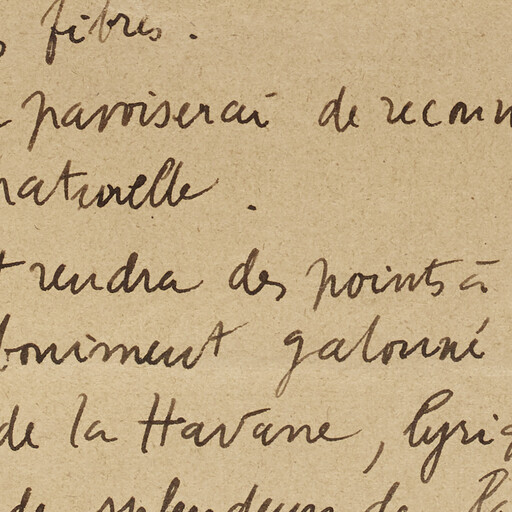 fibres.
pavoiserai de reconn
naturelle.
rendra des points à
boniment galonné
de la Havane, lyriq
de splendeurs de